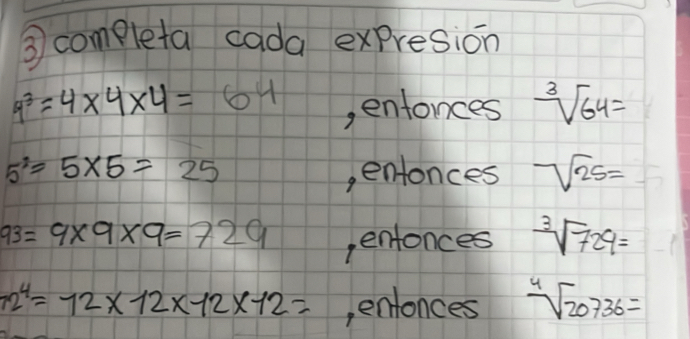 ③ completa cada expresión
4³=4×4×4= 64 ,entonces ∛64=
5²= 5×5= 25 ,entonces √25=
93= 9×9×9=729 ,entonces ∛729=
12⁴= 12×12×12×12= ,entonces ∜20736=